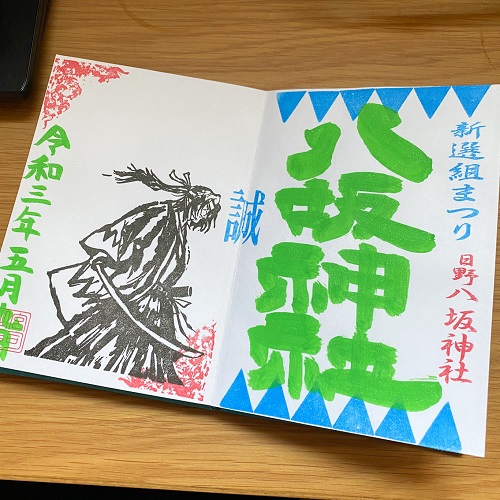 新選組まつり
日野八坂神社
八坂神社
誠
令和三年五月